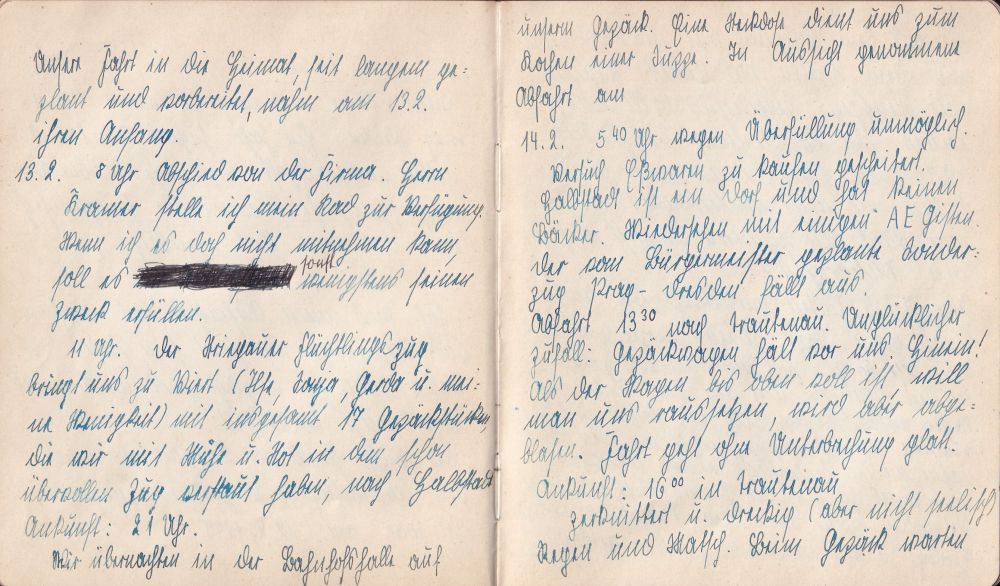 Unsere Fahrt in die Heimat, seit langem ge=
plant und vorbereitet, nahm am 13.2.
ihren Anfang.
13.2. 8 Uhr Abschied von der Firma. Herrn
Kramer stelle ich mein Rad zur Verfügung.
Wenn ich es doch nicht mitnehmen kann,
soll es sonst wenigstens seinen
Zweck erfüllen.
11 Uhr. Der Striegauer Flüchtlingszug
bringt uns zu Viert (Ilse, Tanja, Gerda u. mei=
ne Wenigkeit) mit insgesamt 17 Gepäckstücken,
die wir mit Mühe u. Not in dem schon
übervollen Zug verstaut haben, nach Halbstadt
Ankunft: 21 Uhr.
Wir übernachten in der Bahnhofshalle auf
unserm Gepäck. Eine Steckdose dient uns zum
Kochen einer Suppe. In Aussicht genommene
Abfahrt am
14.2. 5 40 Uhr wegen Überfüllung unmöglich.
Versuch Eßwaren zu kaufen gescheitert.
Halbstadt ist ein Dorf und hat keinen
Bäcker. Wiedersehen mit einigen AEGisten.
Der vom Bürgermeister geplante Sonder=
zug Prag - Dresden fällt aus.
Abfahrt 13 30 nach Trautenau. Unglücklicher
Zufall: Gepäckwagen hält vor uns. Hinein!
Als der Wagen bis oben voll ist, will
man uns raussetzen, wird aber abge=
blasen. Fahrt geht ohne Unterbrechung glatt.
Ankunft: 16 00 in Trautenau
zerknittert u. dreckig (aber nicht seelisch)
Regen und Matsch. Beim Gepäck warten